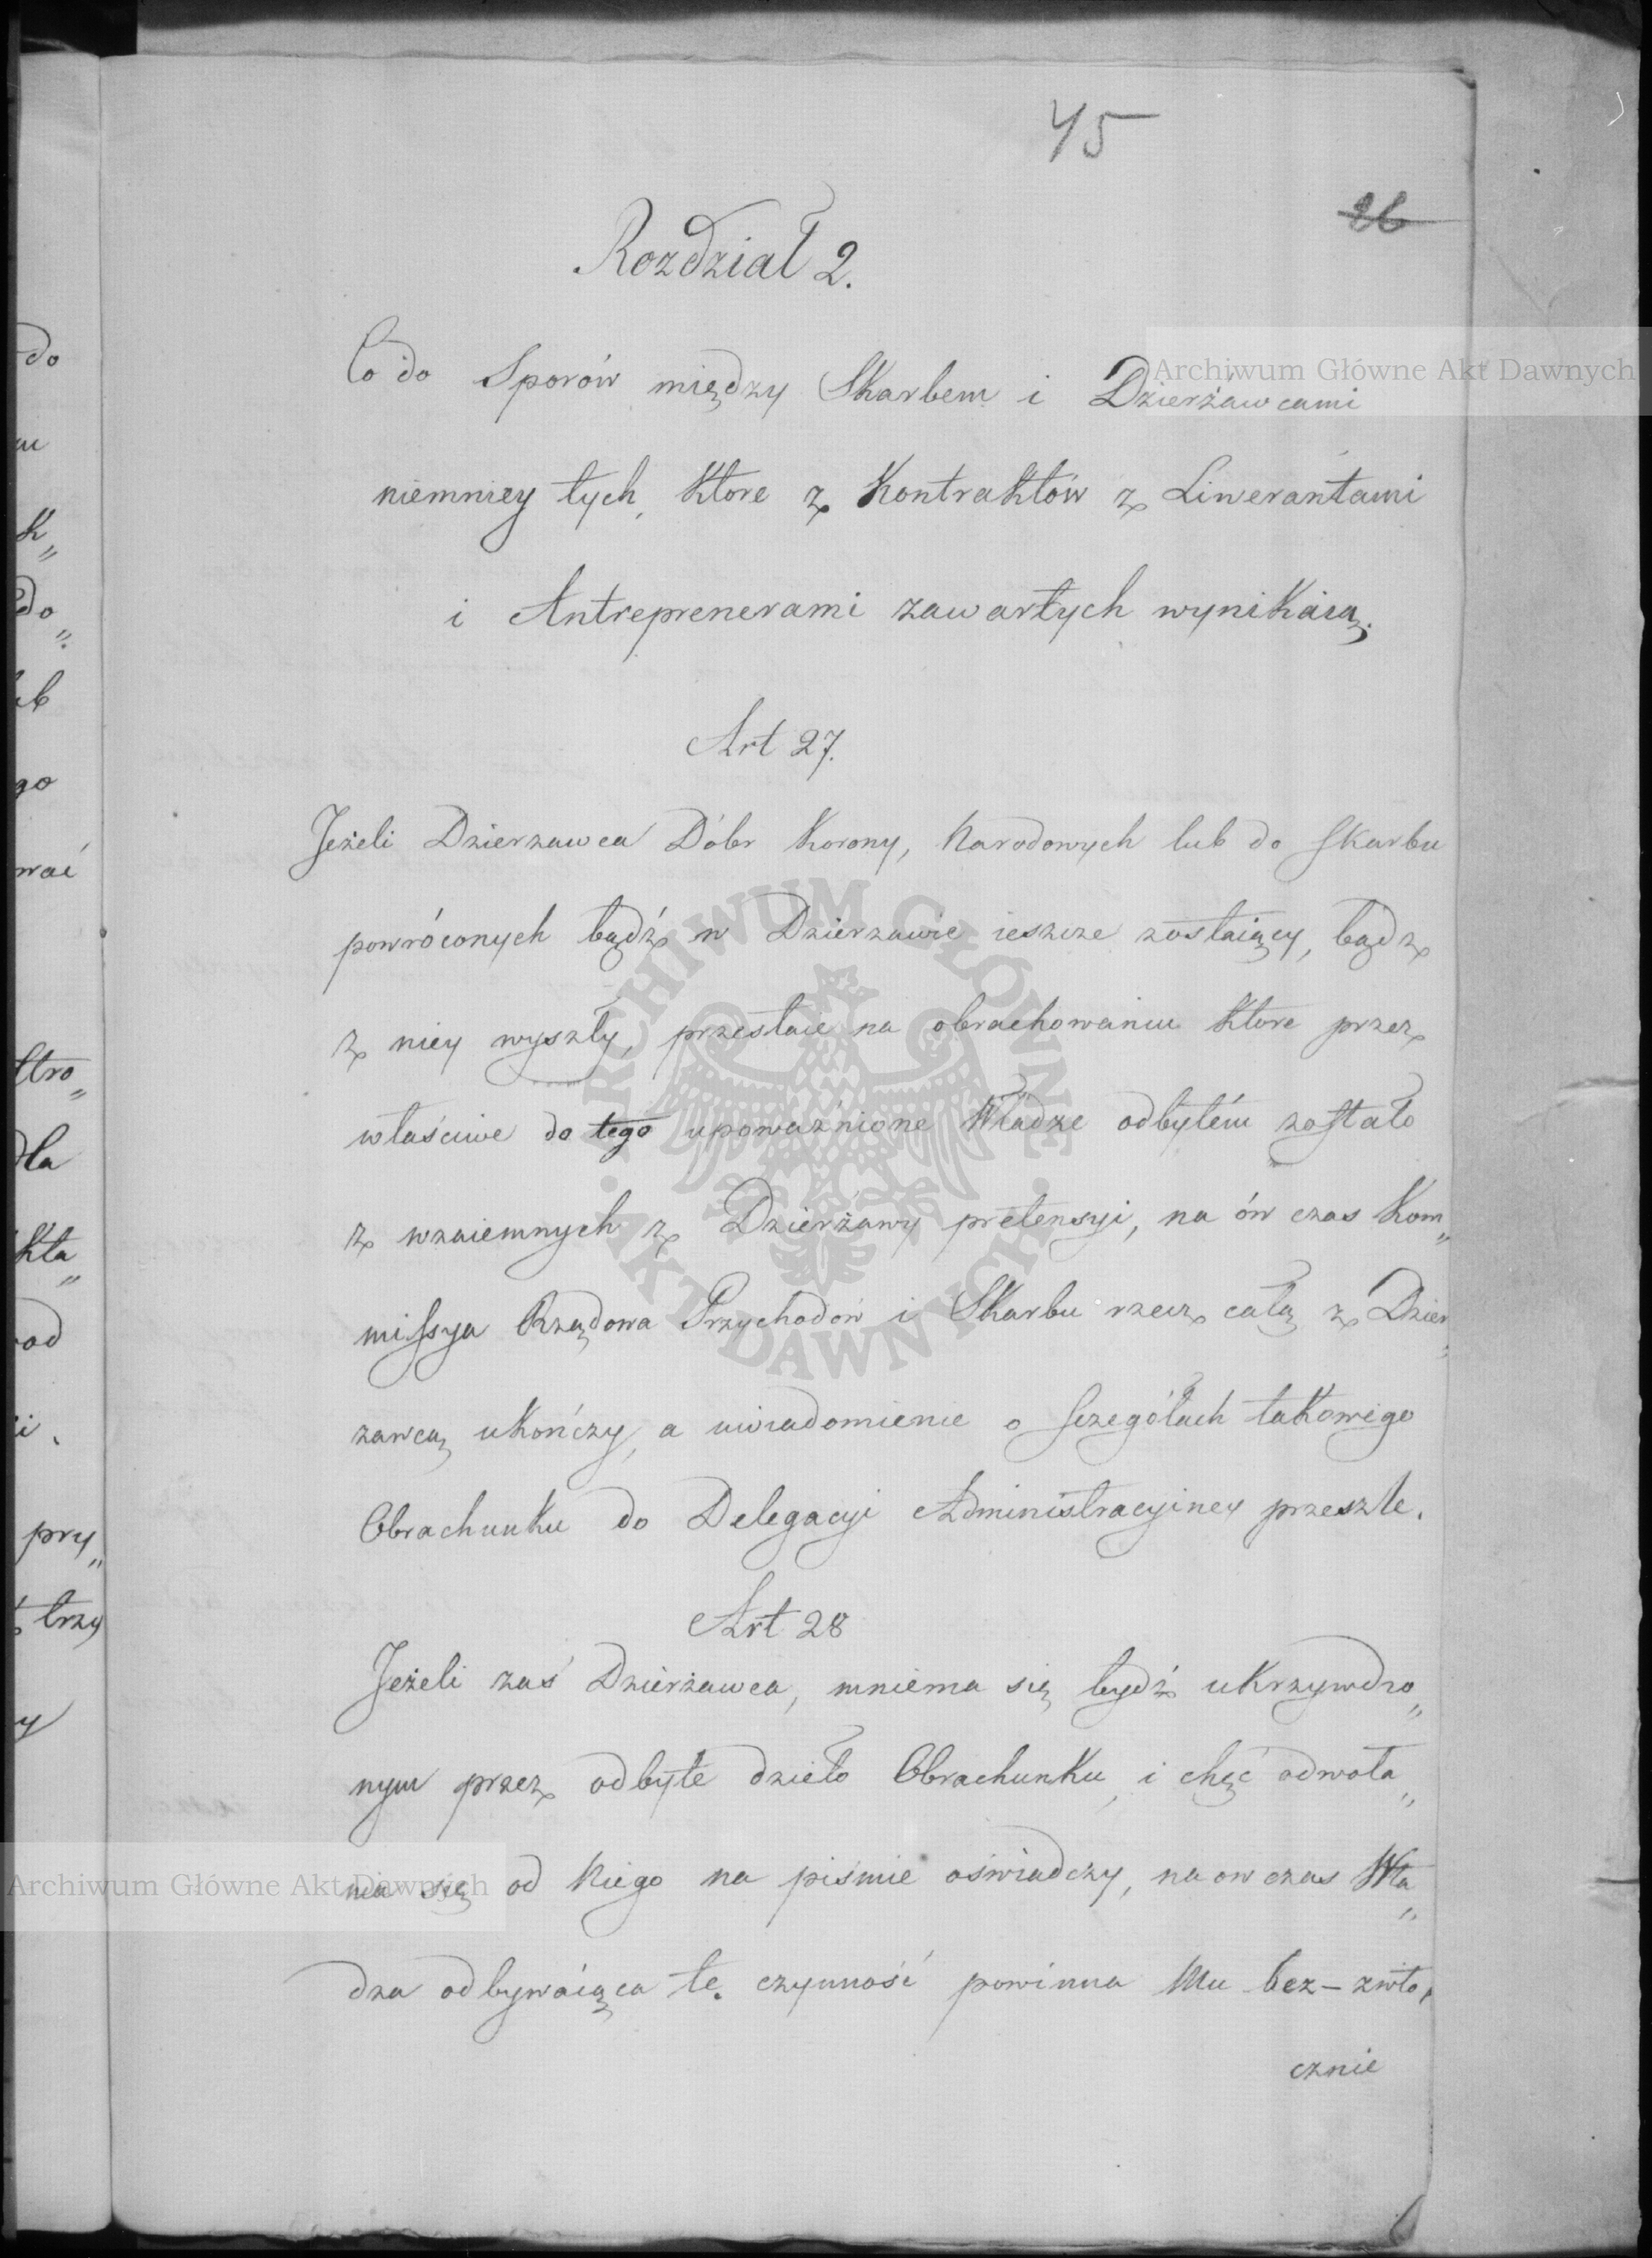 45
26
Rozdział 2.
Co do Sporów między Skarbem i Dzierżawcami
niemniey tych, które z Kontraktów z Liwerantami
i Antreprenerami zawartych wynikaią.
Art 27.
Jeżeli Dzierzawca Dóbr Korony, Narodowych lub do Skarbu
powróconych bądź w Dzierzawie ieszcze zostaiący, bądz
z niey wyszły, przestaie na obrachowaniu które przez
właściwe do tego upoważnione Władze odbytém zostało
z wzaiemnych z Dzierżawy pretensyi, na ów czas Kom„
missya Rządowa Przychodów i Skarbu rzecz całą z Dzier„
zawcą ukończy, a uwiadomienie o szczegółach takowego
Obrachunku do Delegacyi Administracyiney przeszle.
Art 28
Jeżeli zaś Dzierżawca, mniema się bydź ukrzywdzo„
nym przez odbyte dzieło Obrachunku, i chęć odwoła„
nia się od niego na piśmie oświadczy, na ow czas Wła„
dza odbywaiąca tę czynność powinna Mu bez-zwło„
cznie
do
m
k„
do„
ub
go
wać
ttro„
dla
kta„
od
i.
pry„
trzy
y
Archiwum Główne Akt Dawnych
ARCHIWUM GŁÓWNE · AKT DAWNYCH ·
Archiwum Główne Akt Dawnych